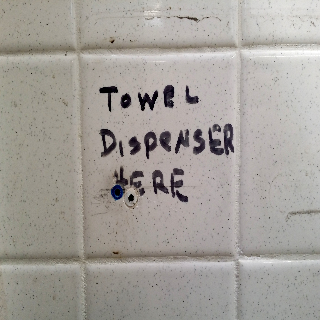 TOWEL
DISPENSER
HERE